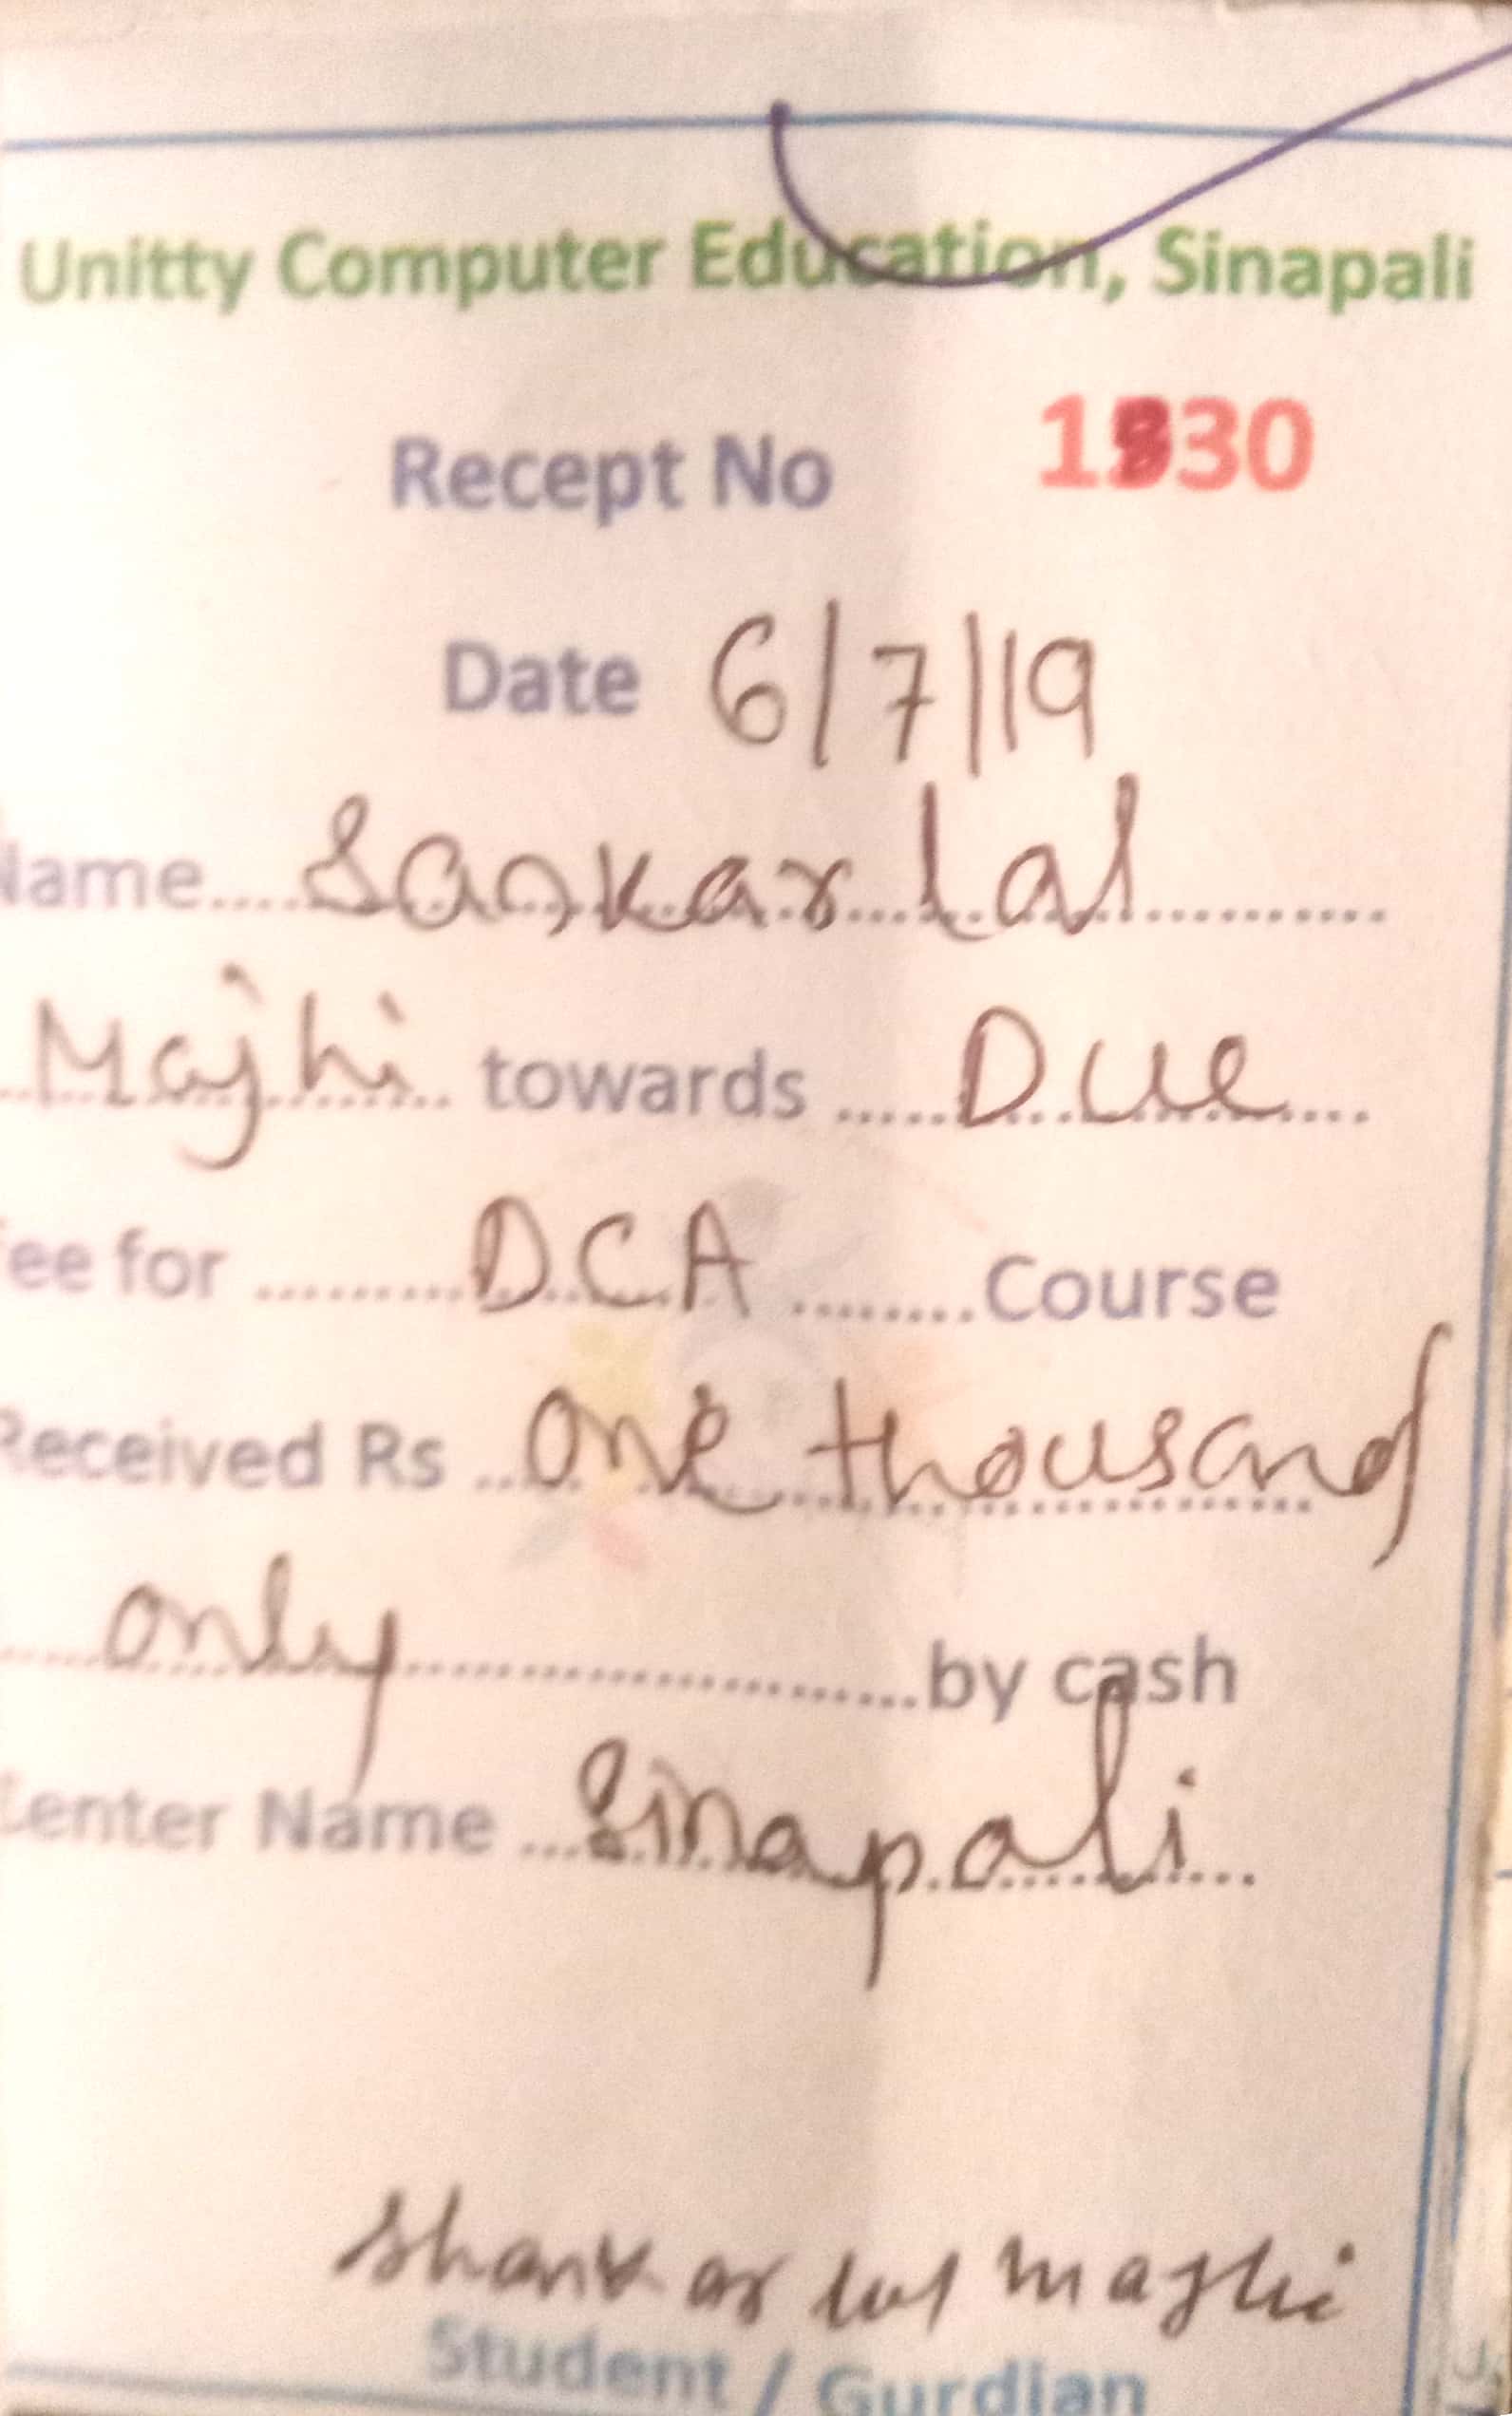 Unitty Computer Education, Sinapali
Recept No 1830
Date 6/7/19
Name.... Sankar Lal ..........
Majhi towards ..... Due ....
Fee for .......... DCA ........Course
Received Rs ... One thousand
only ..............................by cash
Center Name ... Sinapali ...
Shankar lal majhi
Student / Gurdian